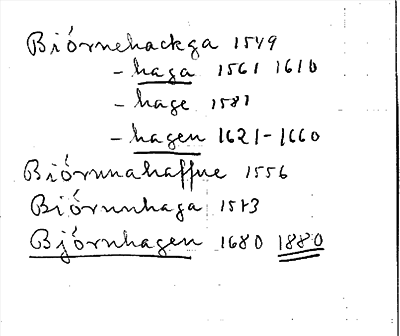 Biórnehackga 1549
- haga 1561 1610
- hage 1581
- hagen 1621-1660
Biórnnahaffne 1556
Biórnnhaga 1573
Bjórnhagen 1680 1880